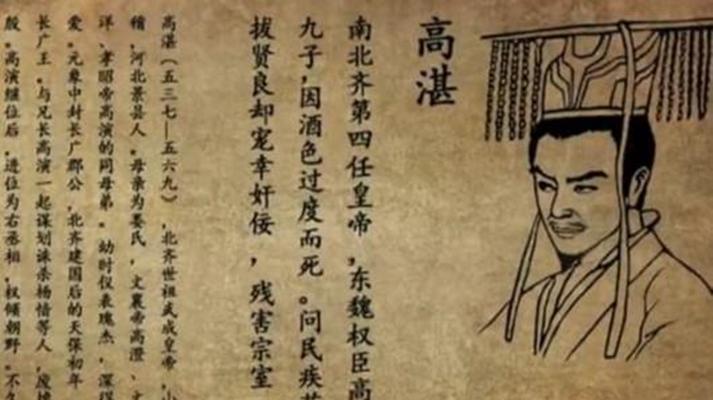 高湛
南北齐第四任皇帝,东魏权臣高
九子,因酒色过度而死。问民疾苦
拔贤良却宠幸奸佞,残害宗室
高湛(五三七—五六九),北齐世祖武成皇帝,小
稽,河北景县人。母亲为娄氏,文襄帝高澄、文
洋、孝昭帝高演的同母弟。幼时仪表瑰杰,深得
爱。元象中封长广郡公,北齐建国后的天保初年
长广王。与兄长高演一起谋划诛杀杨愔等人,废
殷。高演继位后,进位为右丞相,权倾朝野。不久